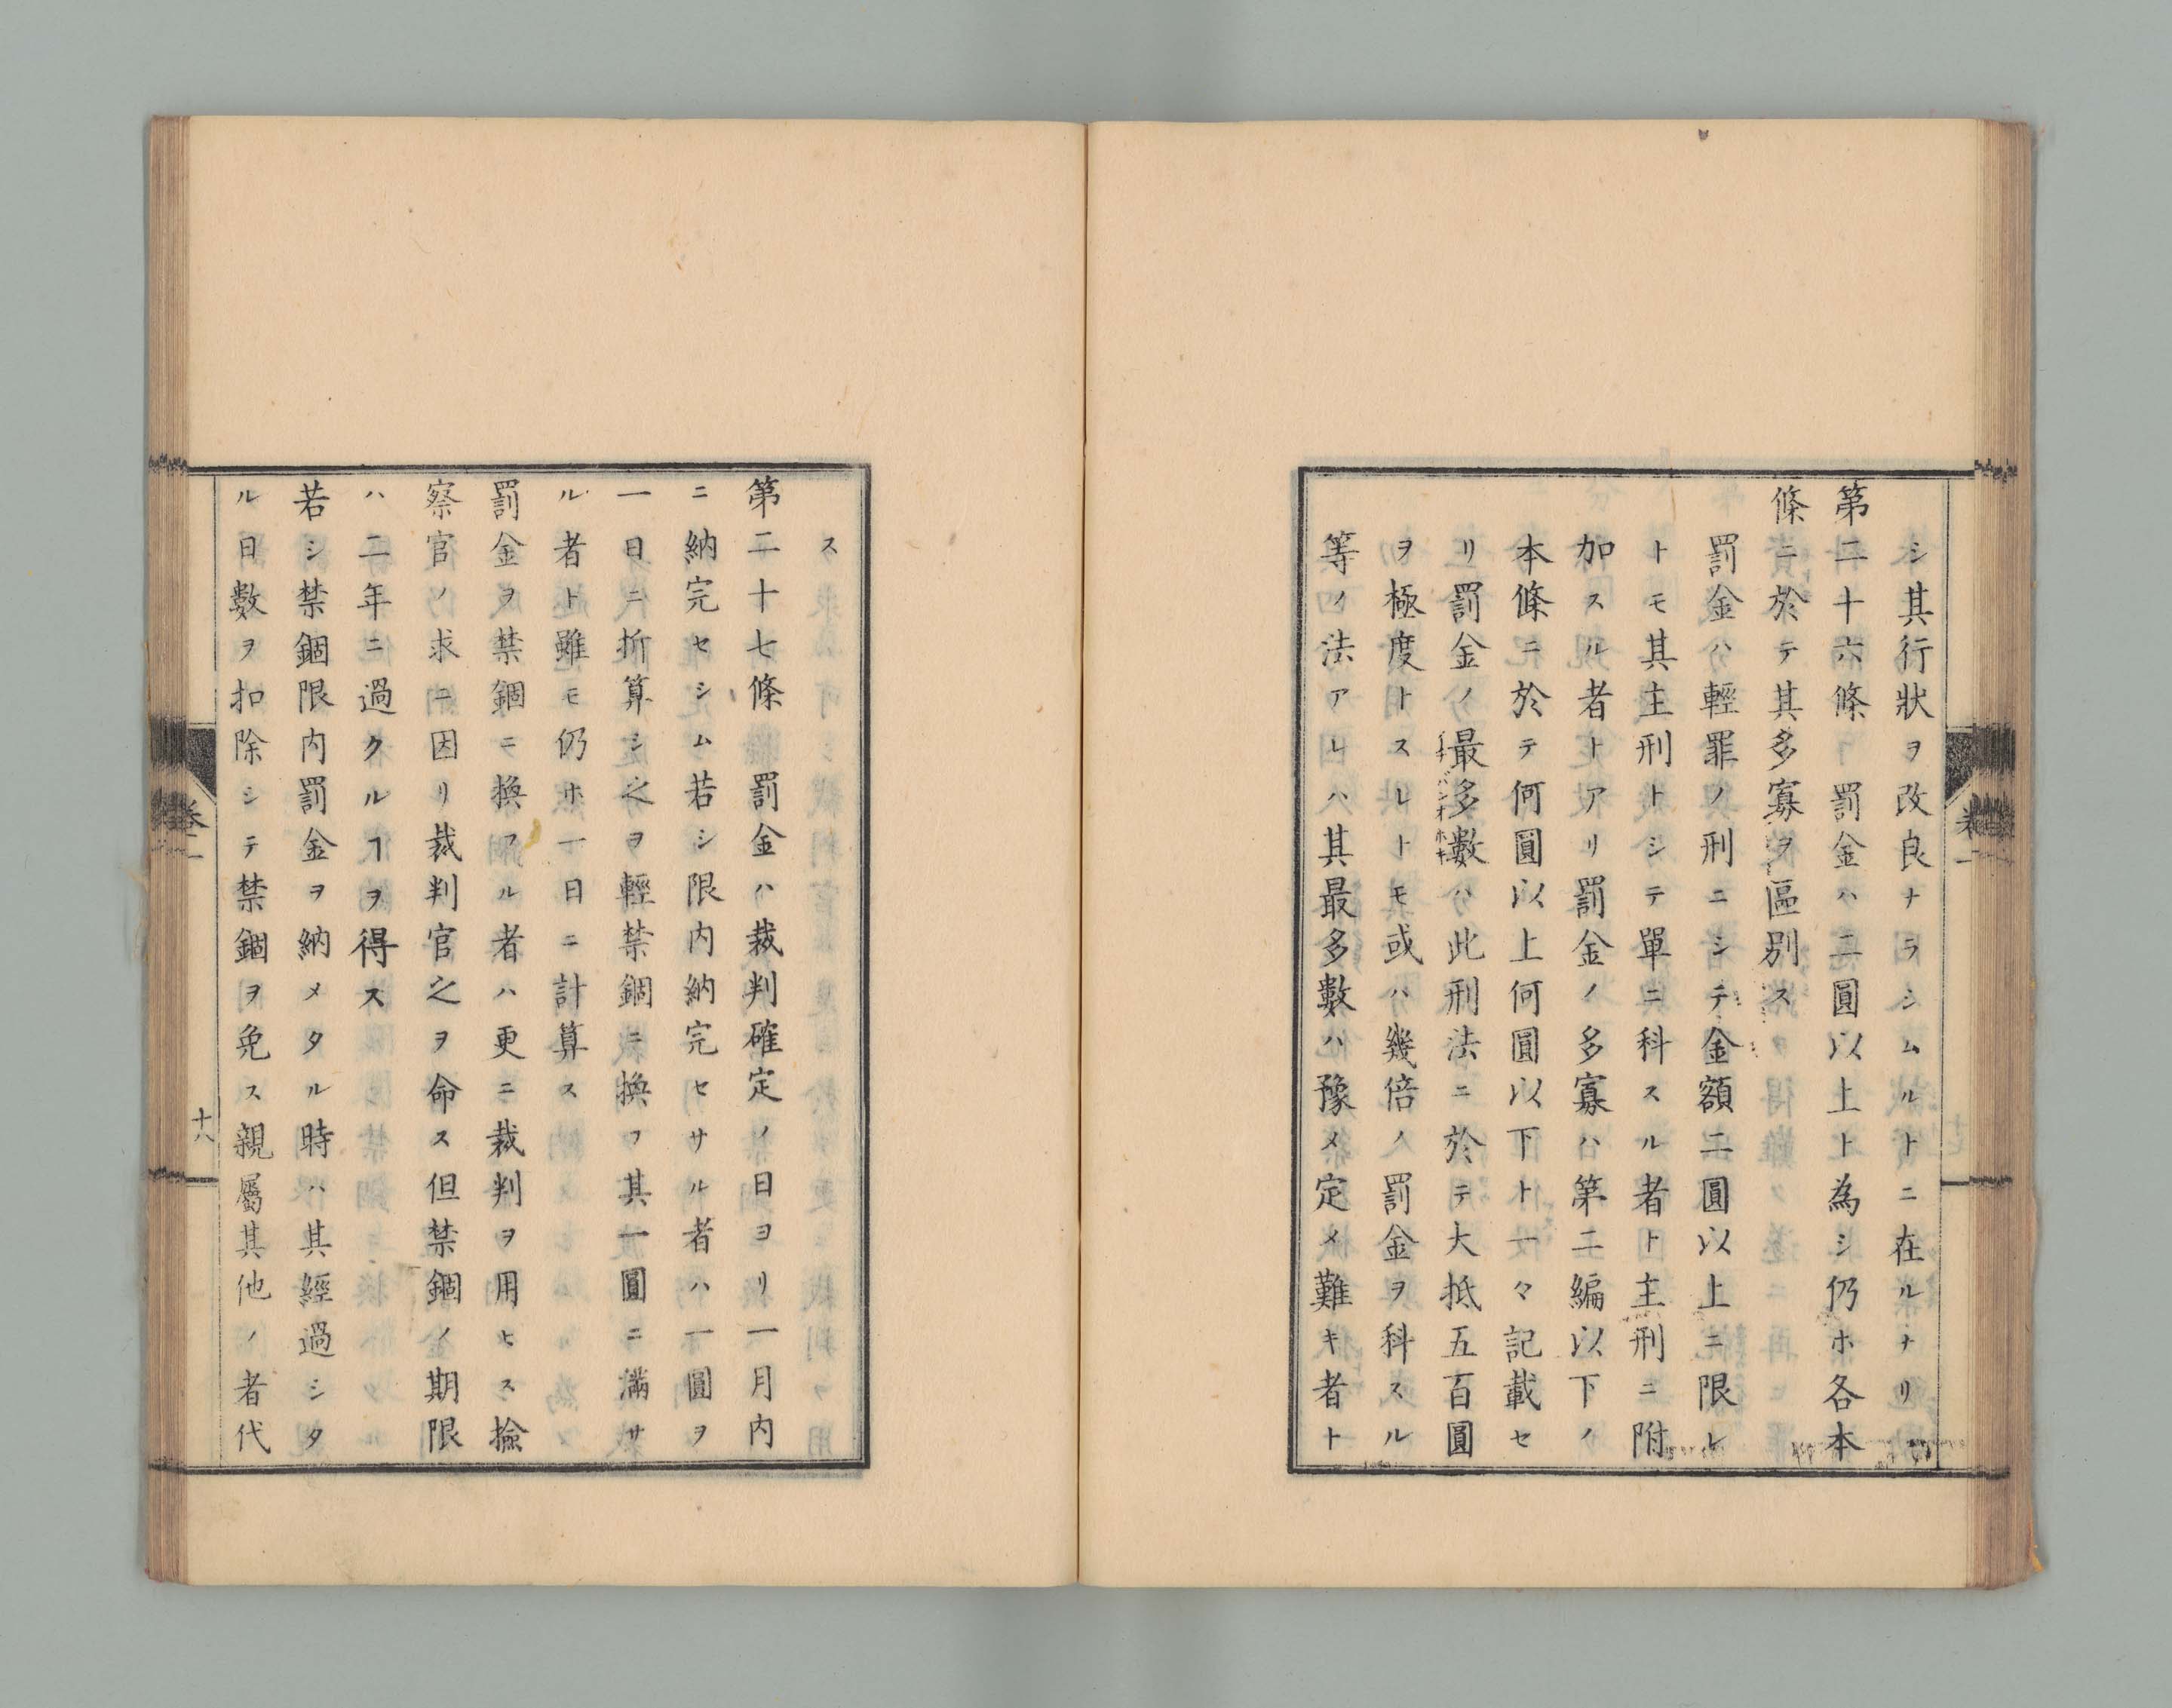 シ其行狀ヲ改良ナラシムルトニ在ルナリ
第二十六條 罰金ハ二圓以上ト為シ仍ホ各本
條ニ於テ其多寡ヲ區別ス
罰金ハ輕罪ノ刑ニシテ金額二圓以上ニ限レ
トモ其主刑トシテ單ニ科スル者ト主刑ニ附
加スル者トアリ罰金ノ多寡ハ第二編以下ノ
本條ニ於テ何圓以上何圓以下ト一々記載セ
リ罰金ノ最多數ハ此刑法ニ於テ大抵五百圓
ヲ極度トスレトモ或ハ幾倍ノ罰金ヲ科スル
等ノ法アレハ其最多數ハ豫メ定メ難キ者ト
卷一
ス
第二十七條 罰金ハ裁判確定ノ日ヨリ一月内
ニ納完セシム若シ限内納完セサル者ハ一圓ヲ
一日ニ折算シ之ヲ輕禁錮ニ換フ其一圓ニ滿サ
ル者ト雖モ仍ホ一日ニ計算ス
罰金ヲ禁錮ニ換フル者ハ更ニ裁判ヲ用ヒス撿
察官ノ求ニ因リ裁判官之ヲ命ス但禁錮ノ期限
ハ二年ニ過クルヿヲ得ス
若シ禁錮限内罰金ヲ納メタル時ハ其經過シタ
ル日數ヲ扣除シテ禁錮ヲ免ス親屬其他ノ者代
卷一
十八